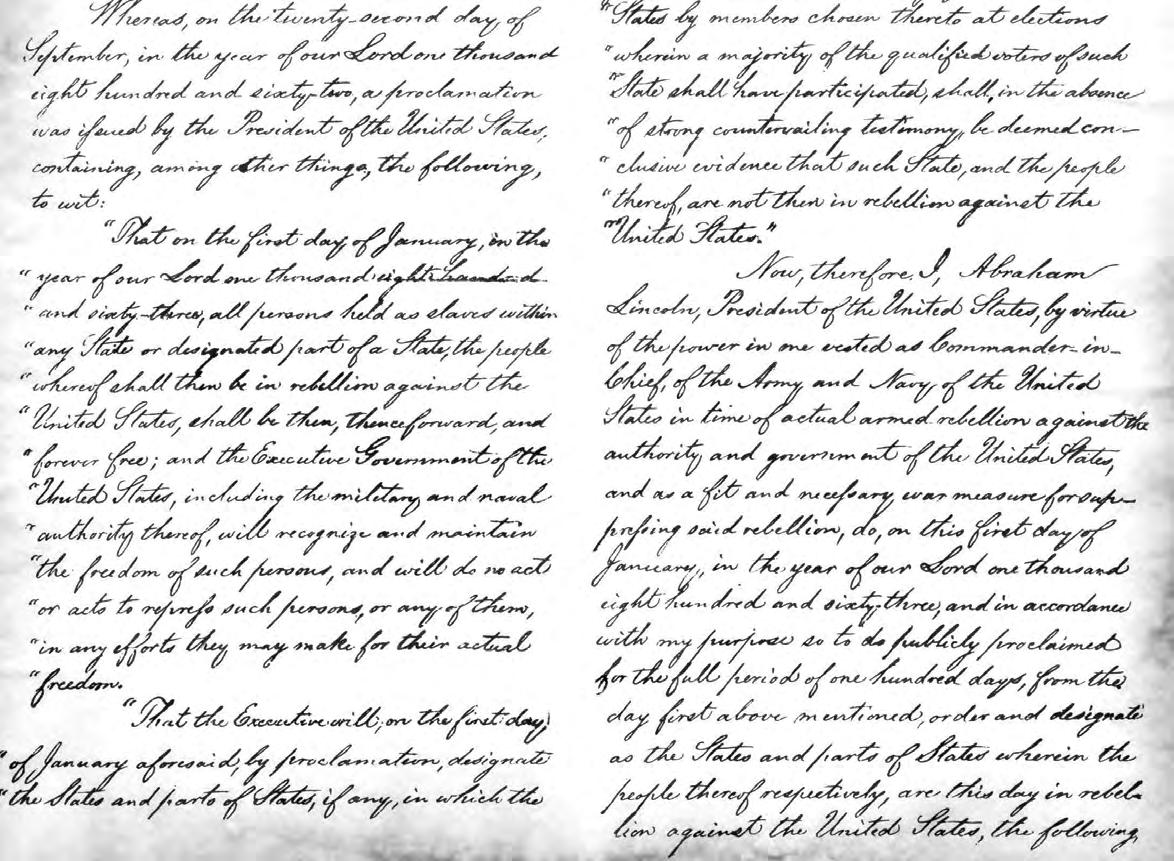 Whereas, on the twenty-second day of
September, in the year of our Lord one thousand
eight hundred and sixty-two, a proclamation
was issued by the President of the United States,
containing, among other things, the following,
to wit:
"That on the first day of January, in the
"year of our Lord one thousand eight hundred
"and sixty-three, all persons held as slaves within
"any State or designated part of a State, the people
"whereof shall then be in rebellion against the
"United States, shall be then, thenceforward, and
"forever free; and the Executive Government of the
"United States, including the military and naval
"authority thereof, will recognize and maintain
"the freedom of such persons, and will do no act
"or acts to repress such persons, or any of them,
"in any efforts they may make for their actual
"freedom.
"That the Executive will, on the first day
"of January aforesaid, by proclamation, designate
"the States and parts of States, if any, in which the
"States by members chosen thereto at elections
"wherein a majority of the qualified voters of such
"State shall have participated, shall, in the absence
"of strong countervailing testimony, be deemed con-
"clusive evidence that such State, and the people
"thereof, are not then in rebellion against the
"United States."
Now, therefore I, Abraham
Lincoln, President of the United States, by virtue
of the power in me vested as Commander-in-
Chief, of the Army and Navy, of the United
States in time of actual armed rebellion against the
authority and government of the United States,
and as a fit and necessary war measure for sup-
pressing said rebellion, do, on this first day of
January, in the year of our Lord one thousand
eight hundred and sixty-three, and in accordance
with my purpose so to do publicly proclaimed
for the full period of one hundred days, from the
day first above mentioned, order and designate
as the States and parts of States wherein the
people thereof respectively, are this day in rebel-
lion against the United States, the following,